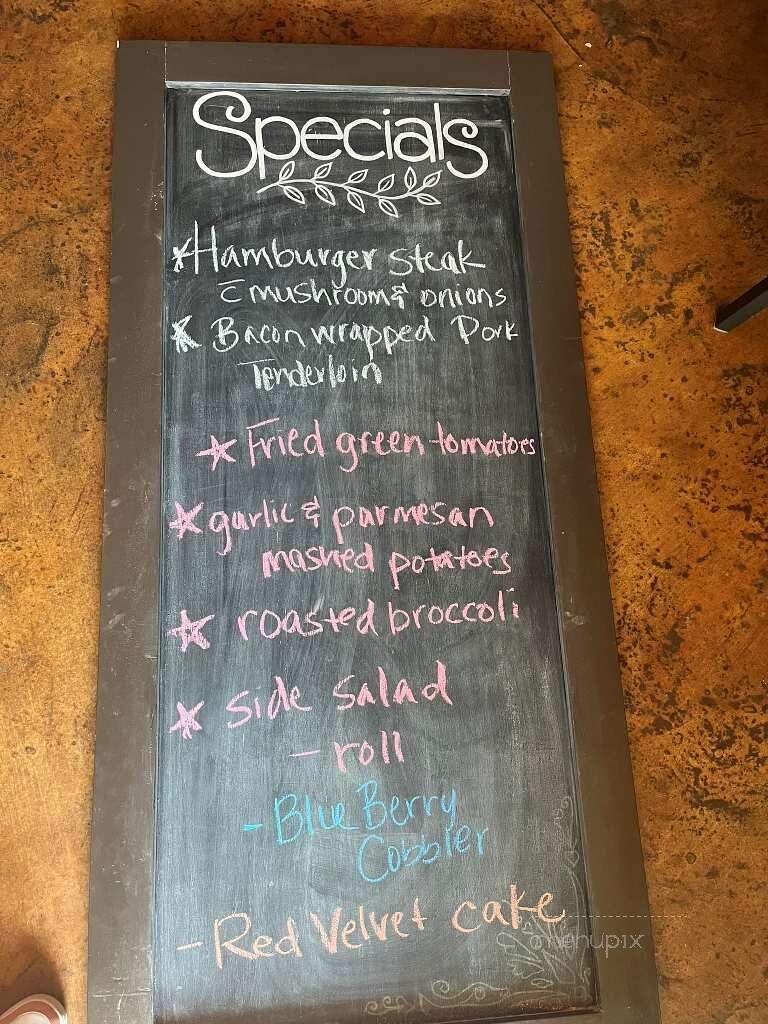 Specials
*Hamburger steak
c̄ mushroom & onions
* Bacon wrapped Pork
Tenderloin
* Fried green tomatoes
* garlic & parmesan
mashed potatoes
* roasted broccoli
* side salad
- roll
- Blue Berry
Cobbler
- Red Velvet cake
menupix